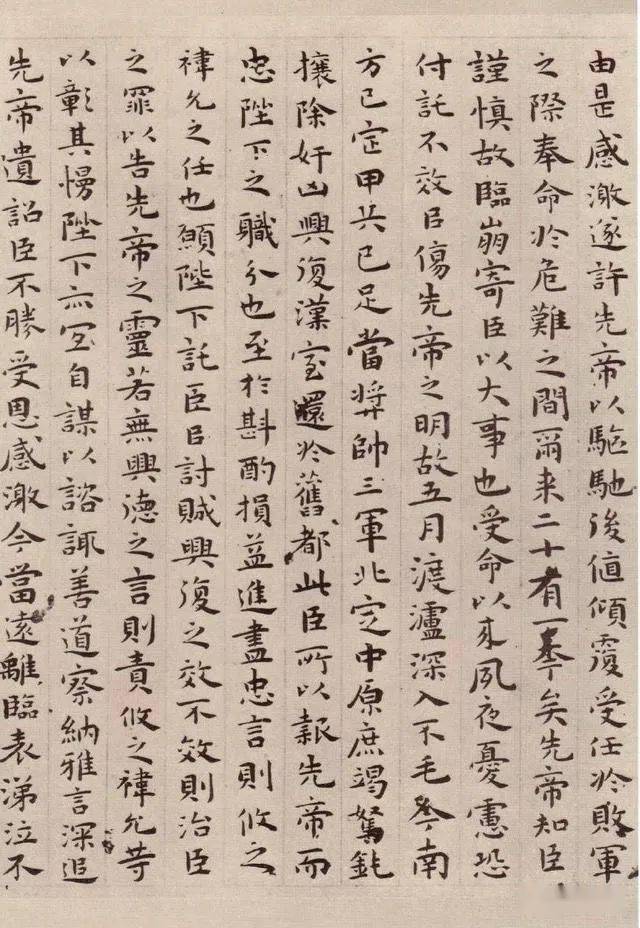 由是感激遂許先帝以驅馳後值傾覆受任於敗軍
之際奉命於危難之間爾来二十有一年矣先帝知臣
謹慎故臨崩寄臣以大事也受命以来夙夜憂慮恐
付託不效㠯傷先帝之明故五月渡瀘深入不毛今南
方已定甲兵已足當獎帥三軍北定中原庶竭駑鈍
攘除奸凶興復漢室還於舊都此臣所以報先帝而
忠陛下之職分也至於斟酌損益進盡忠言則攸之
禕允之任也願陛下託臣㠯討賊興復之效不效則治臣
之罪以告先帝之靈若無興德之言則責攸之禕允等
以彰其慢陛下亦宜自謀以諮諏善道察納雅言深追
先帝遺詔臣不勝受恩感激今當遠離臨表涕泣不